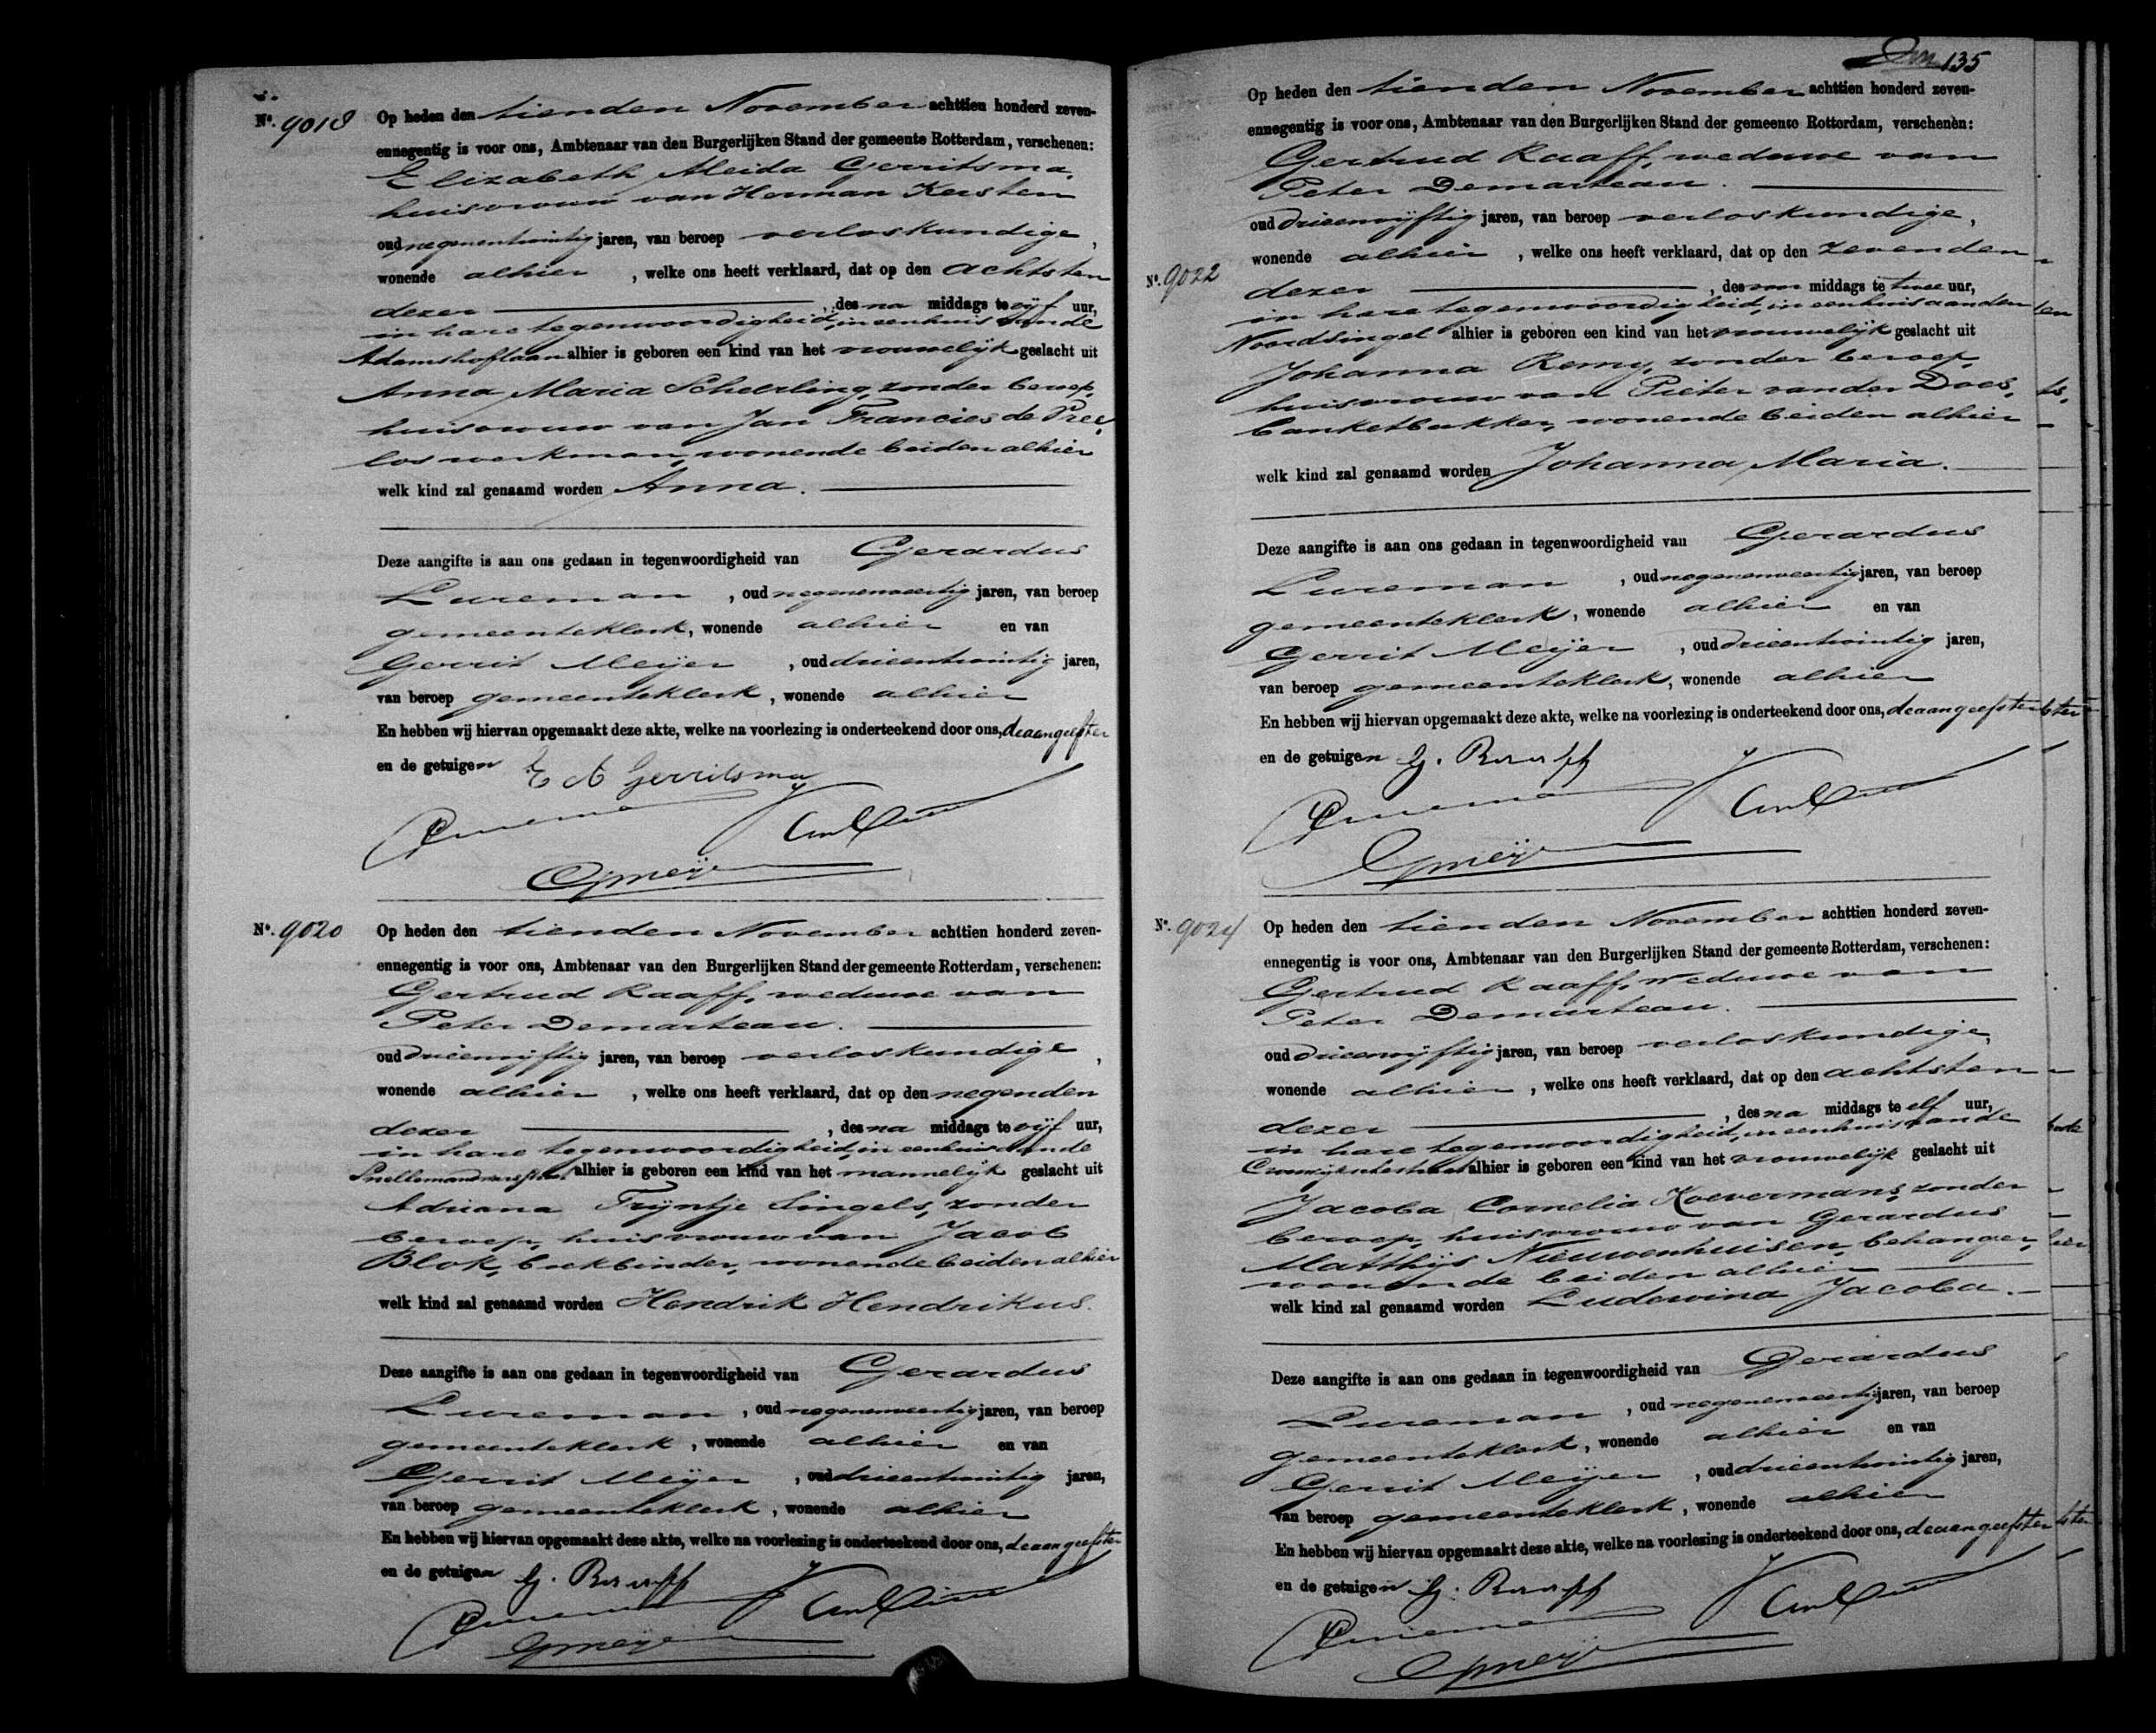 No. 9018
Op heden den tienden November achttien honderd zeven-
ennegentig is voor ons, Ambtenaar van den Burgerlijken Stand der gemeente Rotterdam, verschenen:
Elizabeth Aleida Gerritsma,
huisvrouw van Herman Kersten
oud negenentwintig jaren, van beroep verloskundige,
wonende alhier, welke ons heeft verklaard, dat op den achtsten
dezer, des na middags te vijf uur,
in hare tegenwoordigheid, in een huis aan de
Adamshoflaan alhier is geboren een kind van het vrouwelijk geslacht uit
Anna Maria Scheerling, zonder beroep,
huisvrouw van Jan Francies de Pree,
los werkman, wonende beiden alhier
welk kind zal genaamd worden Anna.
Deze aangifte is aan ons gedaan in tegenwoordigheid van Gerardus
Lureman, oud negenenveertig jaren, van beroep
gemeenteklerk, wonende alhier en van
Gerrit Meijer, oud drieentwintig jaren,
van beroep gemeenteklerk, wonende alhier
En hebben wij hiervan opgemaakt deze akte, welke na voorlezing is onderteekend door ons, de aangeefster
en de getuigen E A Gerritsma
GMeijer
No. 9020
Op heden den tienden November achttien honderd zeven-
ennegentig is voor ons, Ambtenaar van den Burgerlijken Stand der gemeente Rotterdam, verschenen:
Gertrud Raaff, weduwe van
Peter Demarteau.
oud drieenvijftig jaren, van beroep verloskundige,
wonende alhier, welke ons heeft verklaard, dat op den negenden
dezer, des na middags te vijf uur,
in hare tegenwoordigheid, in een huis aan de
alhier is geboren een kind van het mannelijk geslacht uit
Adriana Trijntje Singels, zonder
beroep, huisvrouw van Jacob
Blok, boekbinder, wonende beiden alhier
welk kind zal genaamd worden Hendrik Hendrikus.
Deze aangifte is aan ons gedaan in tegenwoordigheid van Gerardus
Lureman, oud negenenveertig jaren, van beroep
gemeenteklerk, wonende alhier en van
Gerrit Meijer, oud drieentwintig jaren,
van beroep gemeenteklerk, wonende alhier
En hebben wij hiervan opgemaakt deze akte, welke na voorlezing is onderteekend door ons, de aangeefster
en de getuigen G. Raaff
GMeijer
135
No. 9022
Op heden den tienden November achttien honderd zeven-
ennegentig is voor ons, Ambtenaar van den Burgerlijken Stand der gemeente Rotterdam, verschenen:
Gertrud Raaff, weduwe van
Peter Demarteau.
oud drieenvijftig jaren, van beroep verloskundige,
wonende alhier, welke ons heeft verklaard, dat op den zevenden
dezer, des voor middags te twee uur,
in hare tegenwoordigheid, in een huis aan den
Noordsingel alhier is geboren een kind van het vrouwelijk geslacht uit
Johanna Remy, zonder beroep,
huisvrouw van Pieter van der Does,
banketbakker, wonende beiden alhier
welk kind zal genaamd worden Johanna Maria.
Deze aangifte is aan ons gedaan in tegenwoordigheid van Gerardus
Lureman, oud negenenveertig jaren, van beroep
gemeenteklerk, wonende alhier en van
Gerrit Meijer, oud drieentwintig jaren,
van beroep gemeenteklerk, wonende alhier
En hebben wij hiervan opgemaakt deze akte, welke na voorlezing is onderteekend door ons, de aangeefster
en de getuigen G. Raaff
GMeijer
No. 9024
Op heden den tienden November achttien honderd zeven-
ennegentig is voor ons, Ambtenaar van den Burgerlijken Stand der gemeente Rotterdam, verschenen:
Gertrud Raaff, weduwe van
Peter Demarteau.
oud drieenvijftig jaren, van beroep verloskundige,
wonende alhier, welke ons heeft verklaard, dat op den achtsten
dezer, des na middags te elf uur,
in hare tegenwoordigheid, in een huis aan de
alhier is geboren een kind van het vrouwelijk geslacht uit
Jacoba Cornelia Koevermans, zonder
beroep, huisvrouw van Gerardus
Matthijs Nieuwenhuisen, behanger,
wonende beiden alhier
welk kind zal genaamd worden Ludewina Jacoba.
Deze aangifte is aan ons gedaan in tegenwoordigheid van Gerardus
Lureman, oud negenenveertig jaren, van beroep
gemeenteklerk, wonende alhier en van
Gerrit Meijer, oud drieentwintig jaren,
van beroep gemeenteklerk, wonende alhier
En hebben wij hiervan opgemaakt deze akte, welke na voorlezing is onderteekend door ons, de aangeefster
en de getuigen G. Raaff
GMeijer